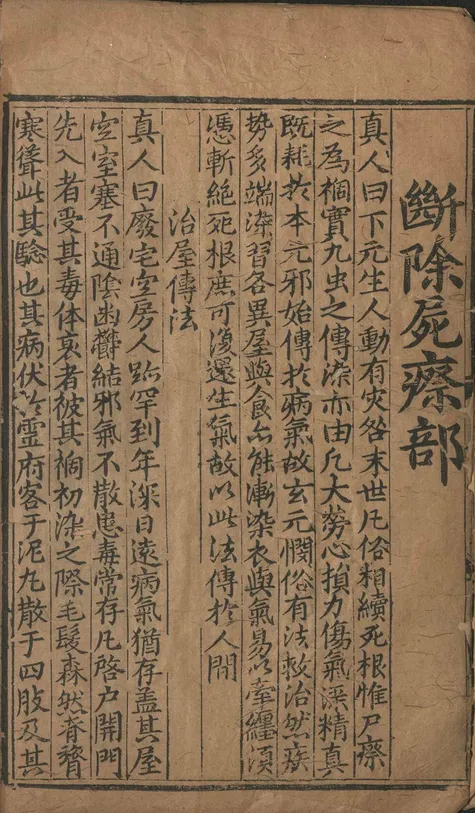 斷除屍瘵部
真人曰下元生人動有灾咎末世凢俗相續死根惟尸瘵
之為禍實九虫之傳染亦由凢大勞心損力傷氣深精真
既耗於本元邪始傳於病氣故玄元憫俗有法救治然疾
勢多端染習各異屋與食亦能漸染衣與氣易以牽纏須
憑斬絶死根庶可復還生氣故以此法傳於人間
治屋傳法
真人曰廢宅空房人跡罕到年深日遠病氣猶存盖其屋
空室塞不通陰幽欎結邪氣不散患毒常存凢啓户開門
先入者受其毒体衰者被其禍初染之際毛髮森然脊膂
寒聳此其驗也其病伏於靈府客于泥九散于四肢及其